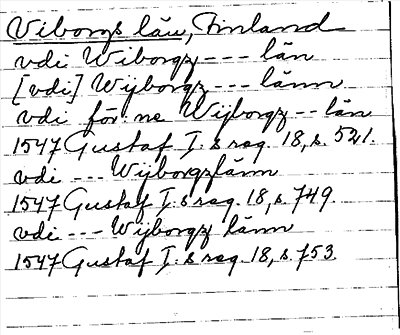 Viborgs län, Finland
vdi Wiborgz --- län
[vdi] Wijborgz --- länn
vdi för:ne Wijborgz -- län
1547 Gustaf I:s reg. 18, s. 521.
vdi --- Wijborgzlänn
1547 Gustaf I:s reg. 18, s. 749.
vdi --- Wijborgz länn
1547 Gustaf I:s reg. 18, s. 753.